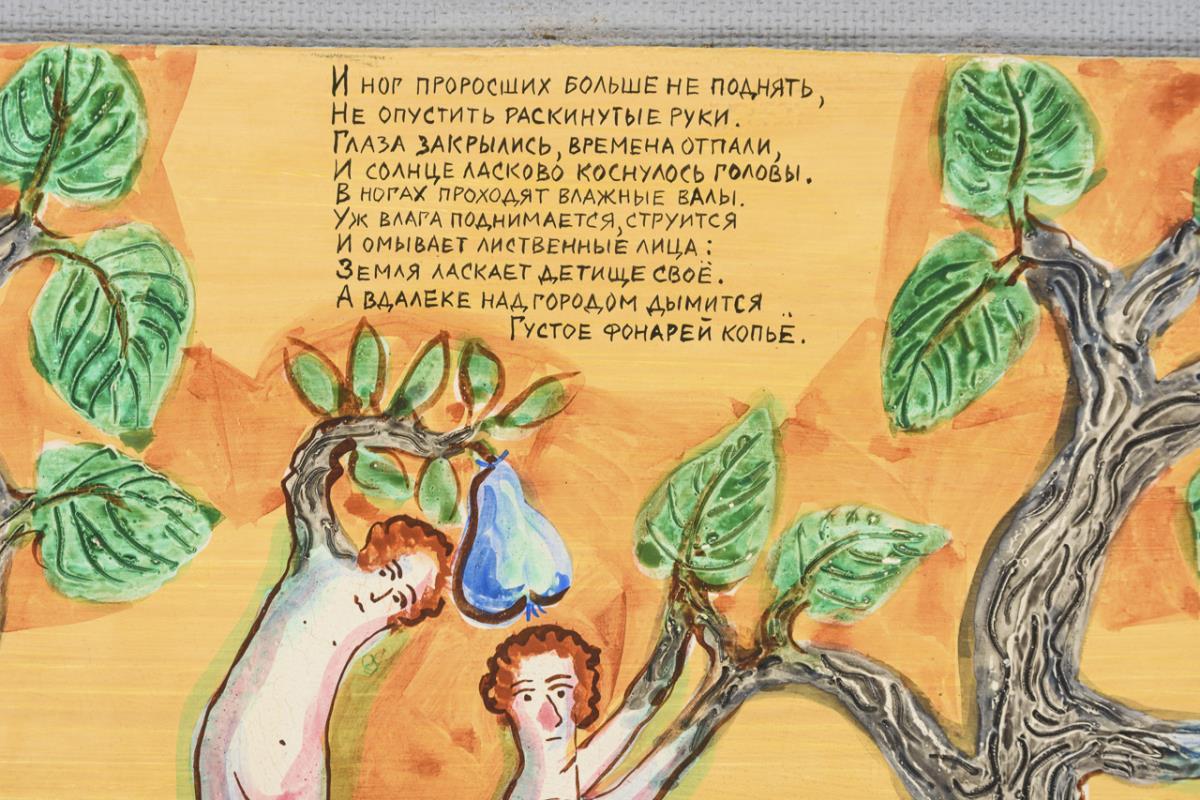 И НОГ ПРОРОСШИХ БОЛЬШЕ НЕ ПОДНЯТЬ,
НЕ ОПУСТИТЬ РАСКИНУТЫЕ РУКИ.
ГЛАЗА ЗАКРЫЛИСЬ, ВРЕМЕНА ОТПАЛИ,
И СОЛНЦЕ ЛАСКОВО КОСНУЛОСЬ ГОЛОВЫ.
В НОГАХ ПРОХОДЯТ ВЛАЖНЫЕ ВАЛЫ.
УЖ ВЛАГА ПОДНИМАЕТСЯ, СТРУИТСЯ
И ОМЫВАЕТ ЛИСТВЕННЫЕ ЛИЦА:
ЗЕМЛЯ ЛАСКАЕТ ДЕТИЩЕ СВОЁ.
А ВДАЛЕКЕ НАД ГОРОДОМ ДЫМИТСЯ
ГУСТОЕ ФОНАРЕЙ КОПЬЁ.